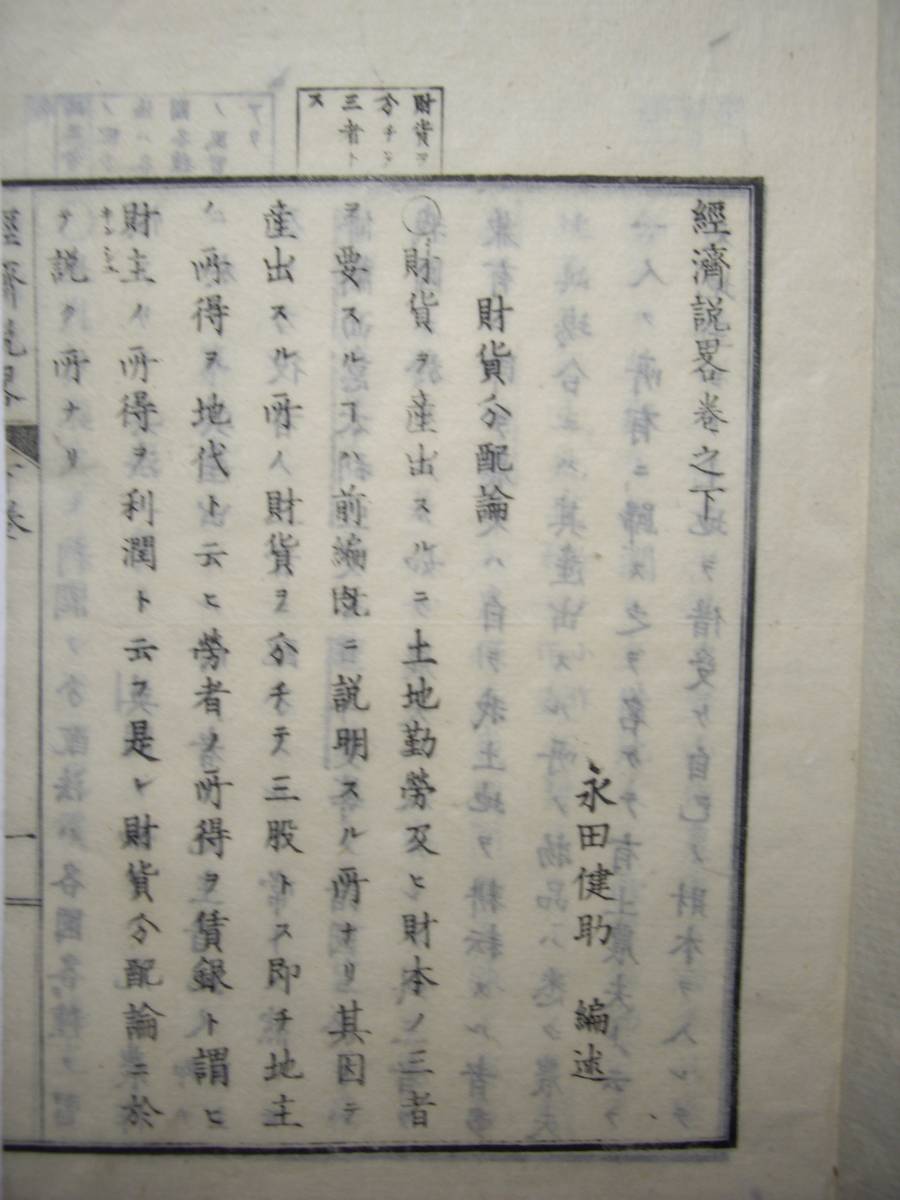 經濟説畧卷之下
永田健助 編述
財貨分配論
財貨ヲ分チテ三者トス
財貨ヲ産出スルニ土地勤勞及ヒ財本ノ三者
ヲ要スルヿハ前編既ニ説明スル所ナリ其因テ
産出スル所ノ財貨ヲ分チテ三股トス即チ地主
ノ所得ヲ地代ト云ヒ勞者ノ所得ヲ賃銀ト謂ヒ
財主ノ所得ヲ利潤ト云フ是レ財貨分配論ニ於
テ説ク所ナリ
經濟説畧
下卷
一